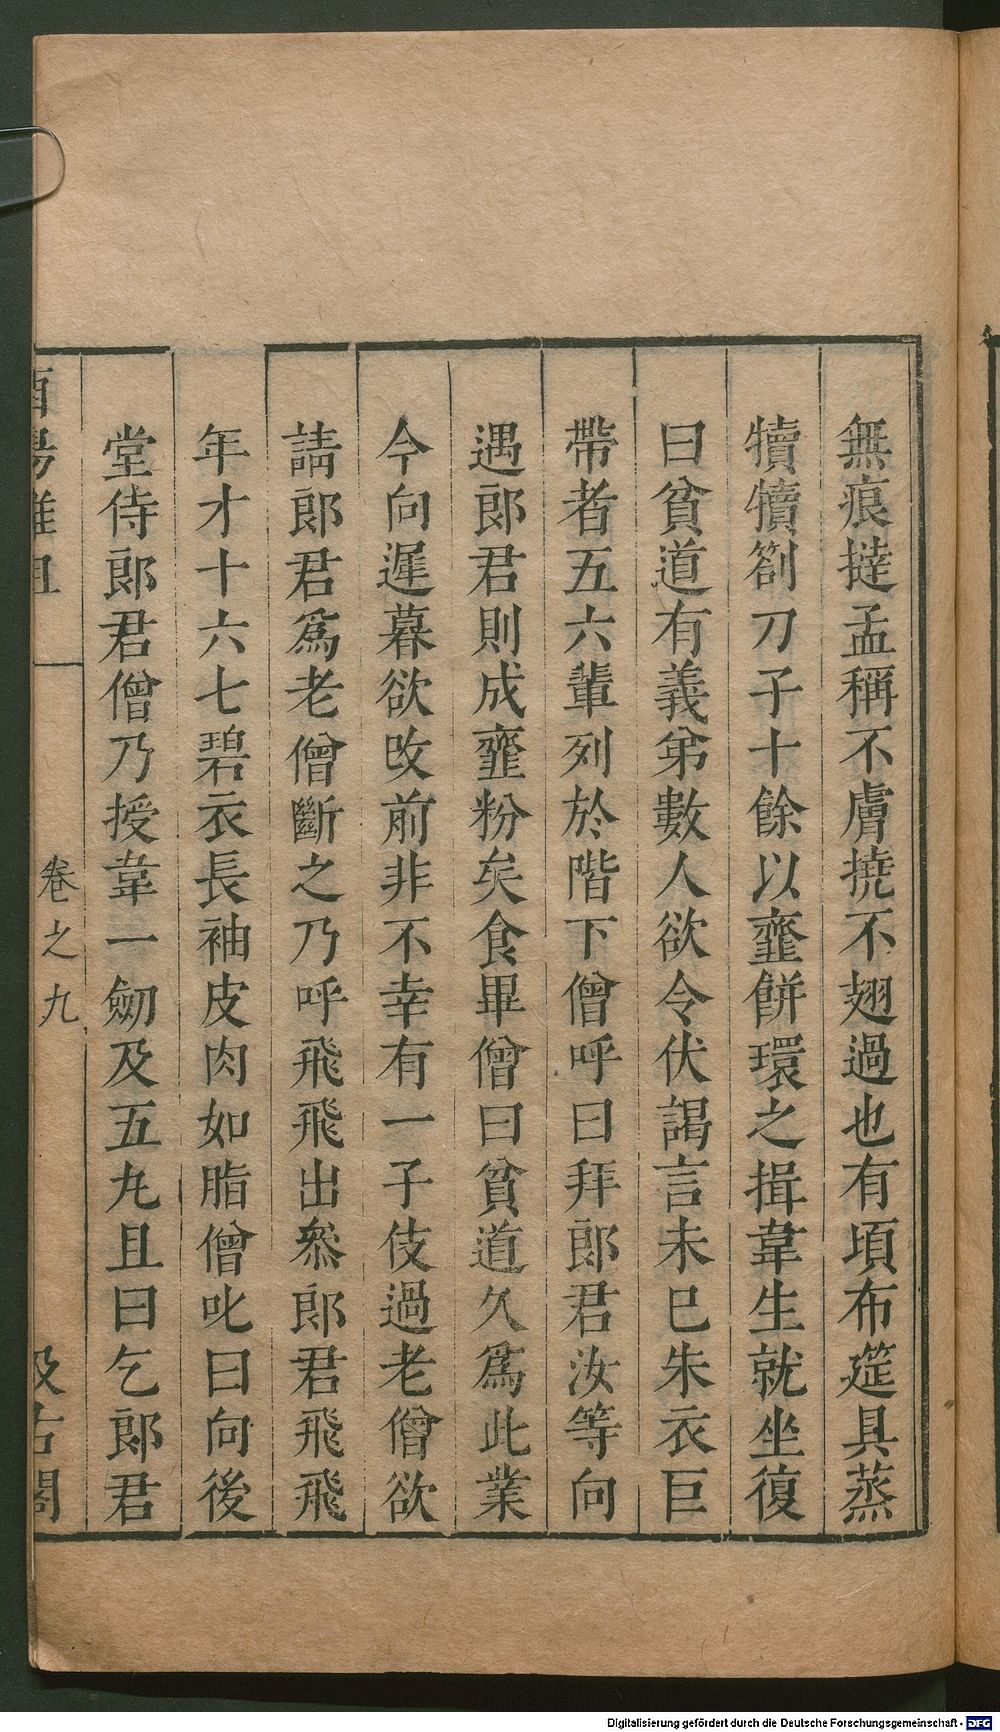 無痕撻孟稱不膚撓不翅過也有頃布筵具蒸
犢犢劄刀子十餘以虀餅環之揖韋生就坐復
曰貧道有義弟數人欲令伏謁言未已朱衣巨
帶者五六輩列於階下僧呼曰拜郎君汝等向
遇郎君則成虀粉矣食畢僧曰貧道久爲此業
今向遲暮欲改前非不幸有一子伎過老僧欲
請郎君爲老僧斷之乃呼飛飛出叅郎君飛飛
年才十六七碧衣長袖皮肉如脂僧叱曰向後
堂侍郎君僧乃授韋一劒及五丸且曰乞郎君
酉陽雜俎 卷之九 汲古閣
Digitalisierung gefördert durch die Deutsche Forschungsgemeinschaft - DFG